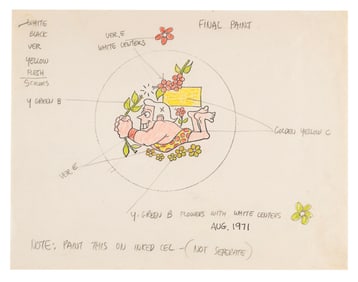 WHITE
BLACK
VER
YELLOW
FLESH
5 COLORS
VER. E
WHITE CENTERS
FINAL PAINT
Y GREEN B
GOLDEN YELLOW C
VER. E
Y. GREEN B FLOWERS WITH WHITE CENTERS
AUG, 1971
NOTE: PAINT THIS ON INKED CEL - (NOT SEPERATE)